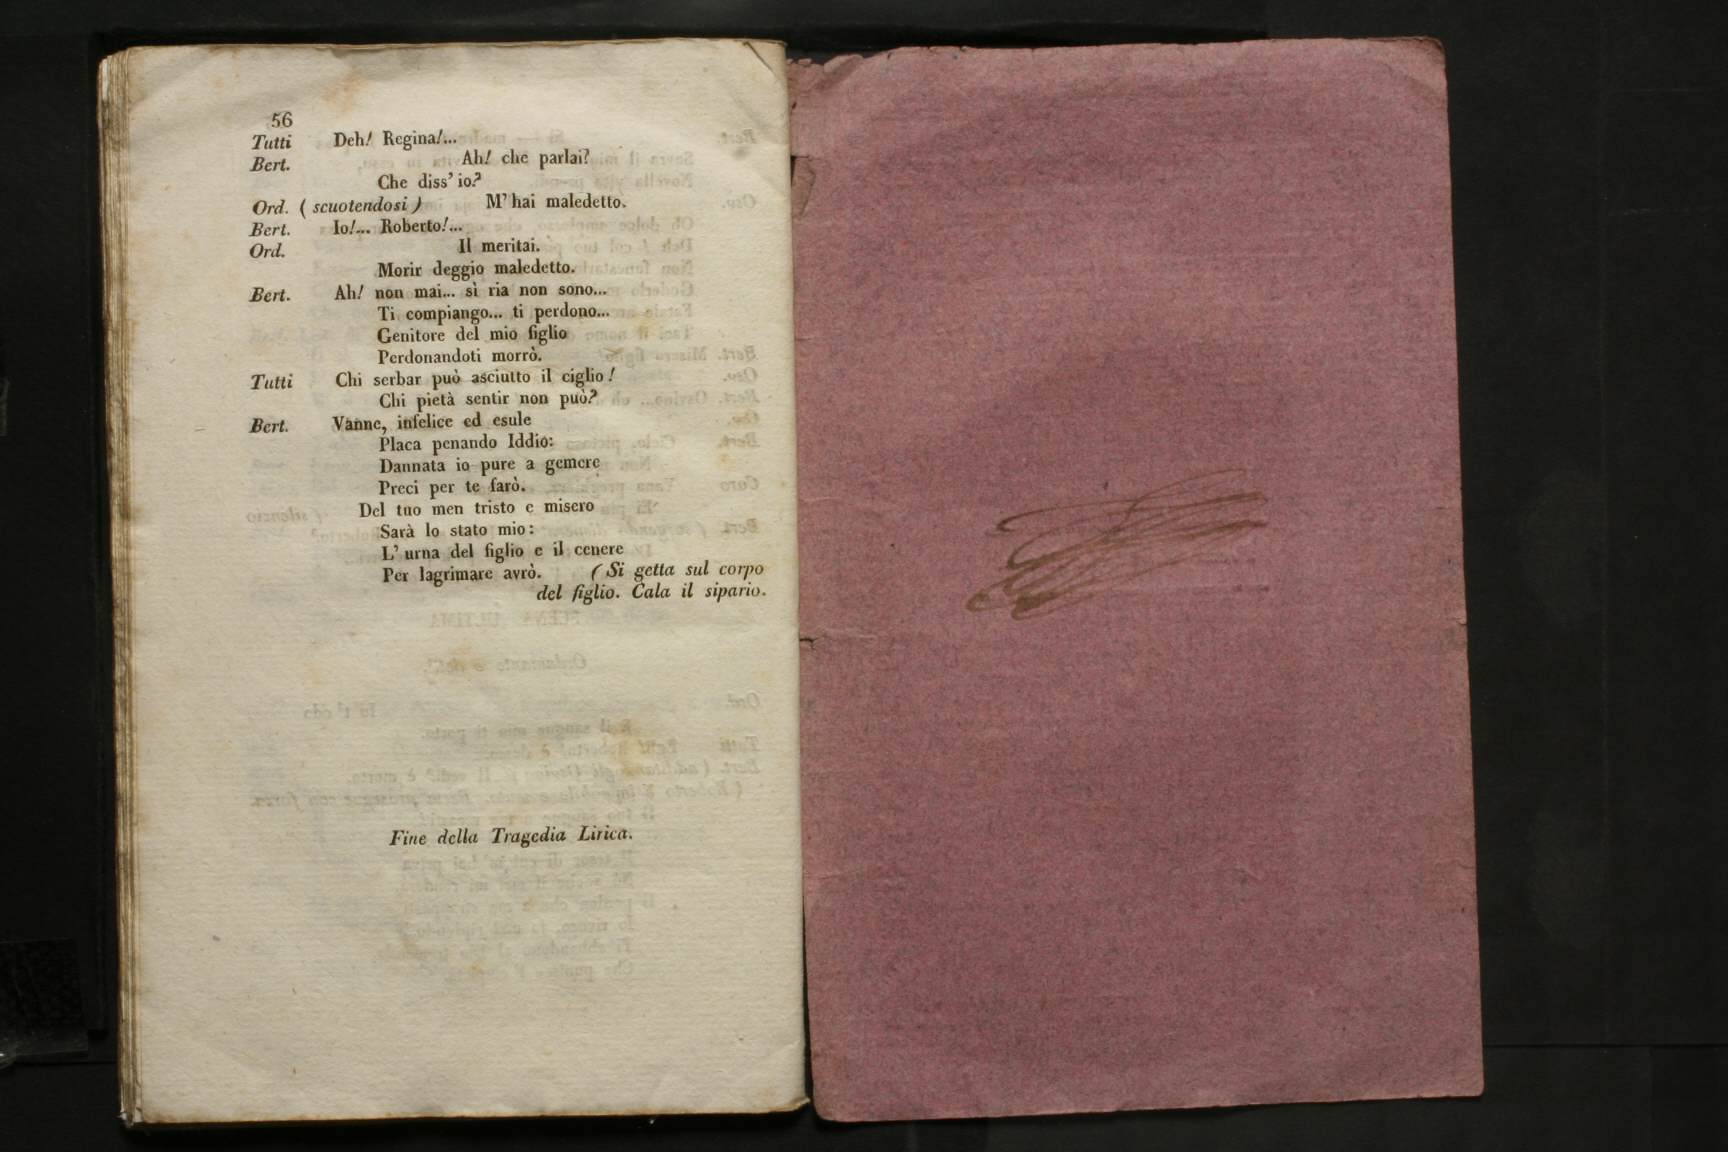 56
Tutti Deh! Regina!...
Bert. Ah! che parlai?
Che diss' io?
Ord. (scuotendosi) M' hai maledetto.
Bert. Io!... Roberto!...
Ord. Il meritai.
Morir deggio maledetto.
Bert. Ah! non mai... sì ria non sono...
Ti compiango... ti perdono...
Genitore del mio figlio
Perdonandoti morrò.
Tutti Chi serbar può asciutto il ciglio!
Chi pietà sentir non può?
Bert. Vanne, infelice ed esule
Placa penando Iddio:
Dannata io pure a gemere
Preci per te farò.
Del tuo men tristo e misero
Sarà lo stato mio:
L' urna del figlio e il cenere
Per lagrimare avrò. (Si getta sul corpo
del figlio. Cala il sipario.
Fine della Tragedia Lirica.